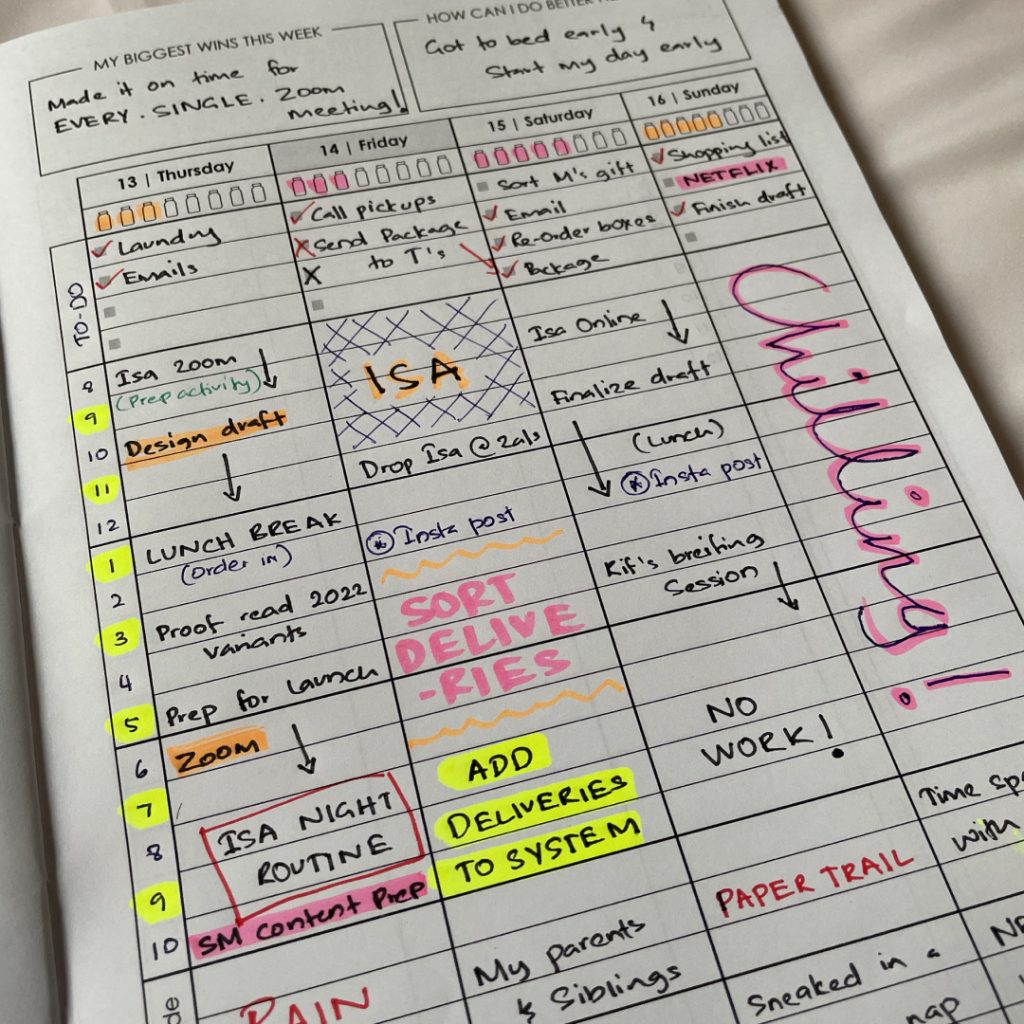 MY BIGGEST WINS THIS WEEK
Made it on time for
EVERY. SINGLE. Zoom
meeting!
HOW CAN I DO BETTER
Got to bed early &
Start my day early
13 | Thursday
14 | Friday
15 | Saturday
16 | Sunday
TO-DO
Laundry
Emails
Call pickups
Send Package
to T's
Sort M's gift
Email
Re-Order boxes
Package
Shopping list
NETFLIX
Finish draft
8
9
10
11
12
1
2
3
4
5
6
7
8
9
10
Isa zoom
(Prep activity)
Design draft
LUNCH BREAK
(Order in)
Proof read 2022
variants
Prep for Launch
ZOOM
ISA NIGHT
ROUTINE
SM Content Prep
PAIN
ISA
Drop Isa @
Insta post
SORT
DELIVE
-RIES
ADD
DELIVERIES
TO SYSTEM
My parents
& Siblings
Isa Online
Finalize draft
(Lunch)
Insta post
Kif's breifing
Session
NO
WORK!
PAPER TRAIL
Sneaked in a
nap
Chilling!
Time
with